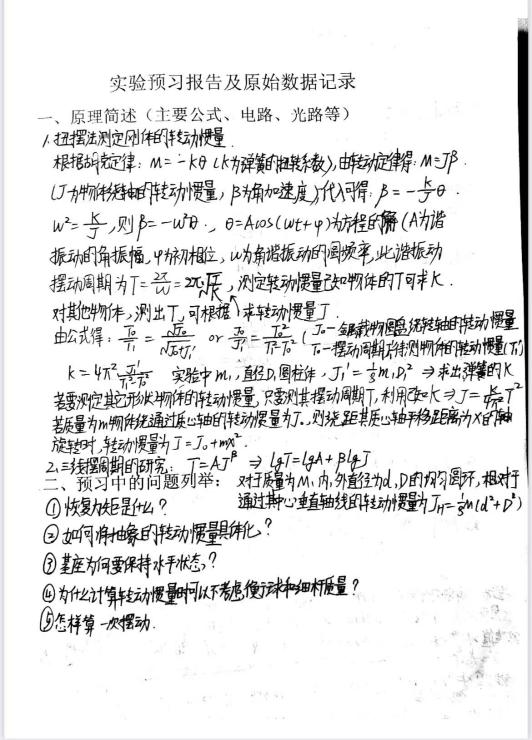 实验预习报告及原始数据记录
一、原理简述（主要公式、电路、光路等）
1. 扭摆法测定刚体的转动惯量.
根据胡克定律: M = -Kθ (K为弹簧的扭转系数), 由转动定律得: M=Jβ
(J为物体绕轴的转动惯量, β为角加速度), 代入可得: β = -K/J θ.
ω²=K/J, 则β=-ω²θ., θ=Acos(ωt+φ)为方程的解 (A为谐
振动的角振幅, φ为初相位, ω为角谐振动的圆频率, 此谐振动
摆动周期为T=2π/ω=2π√J/√K, 测定转动惯量已知物体的T可求K.
对其他物体, 测出T, 可根据↑求转动惯量J
由公式得: T₀/T₁=√J₀/√J₀+J₁' or J₀/J₁'=T₀²/T₁²-T₀² (J₀-金属载物圆盘绕转轴的转动惯量
T₀-摆动周期 待测物体的转动惯量(T₁)
K=4π² J₁'/T₁²-T₀² 实验中m₁, 直径D₁圆柱体, J₁'=1/8 m₁D₁² ⇒求出弹簧的K
若要测定其它形状物体的转动惯量, 只需测其摆动周期T, 利用已知K⇒J=K/4π² T²
若质量为m物体绕通过质心轴的转动惯量为J₀, 则绕距其质心轴平移距离为x的轴
旋转时, 转动惯量为J=J₀+mx².
2. 三线摆周期的研究: T=AJ^β ⇒ lgT=lgA+βlgJ
二、预习中的问题列举: 对于质量M, 内,外直径为d,D的均匀圆环, 相对于
通过其中心垂直轴线的转动惯量为J_H=1/8 M(d²+D²)
①恢复力矩是什么?
②如何将抽象的转动惯量具体化?
③基座为何要保持水平状态?
④为什么计算转动惯量时可以不考虑衡球和细杆质量?
⑤怎样算一次摆动.